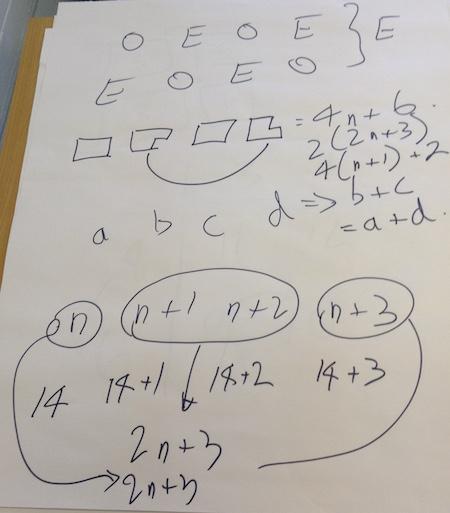 O E O E } E
E O E O
= 4n + 6.
2(2n+3)
4(n+1) + 2
a b c d => b+c
= a+d.
n n+1 n+2 n+3
14 14+1 14+2 14+3
2n+3
2n+3